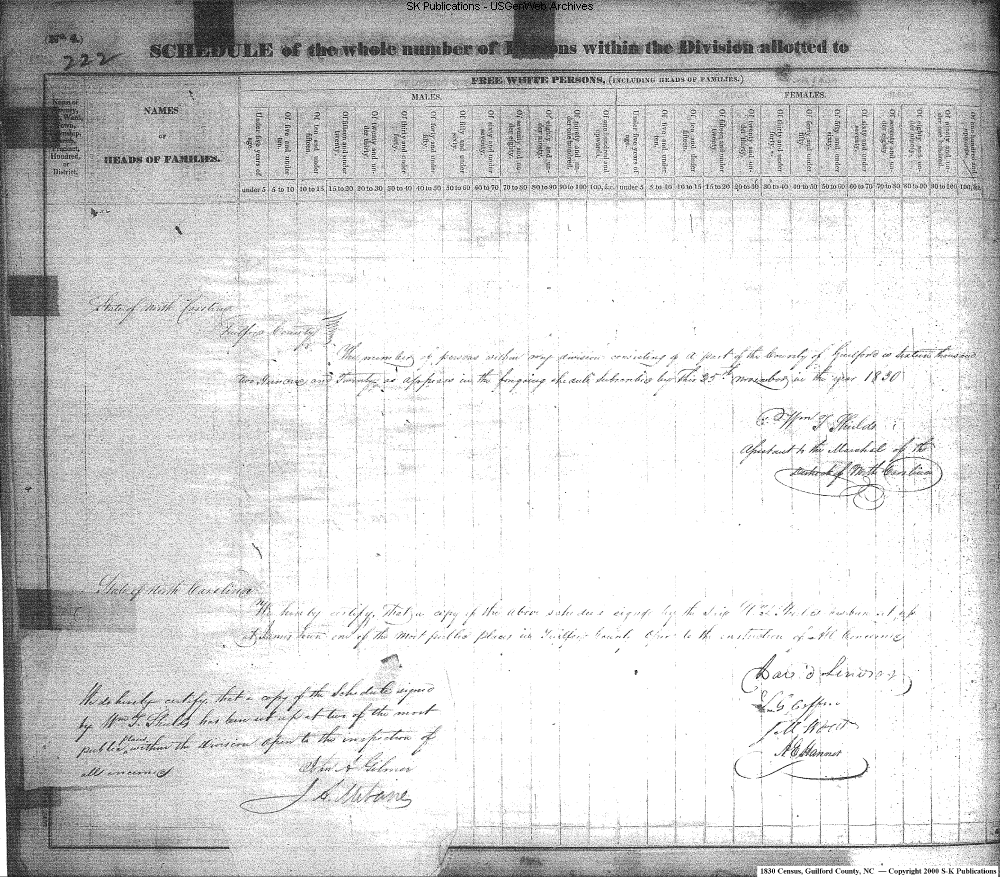 SK Publications - USGenWeb Archives
(No. 4.)
222
SCHEDULE of the whole number of Persons within the Division allotted to
FREE WHITE PERSONS, (INCLUDING HEADS OF FAMILIES.)
MALES. FEMALES.
NAMES
OF
HEADS OF FAMILIES.
Hundred,
or
District.
Under five years of age. Of five and under ten. Of ten and under fifteen. Of fifteen and under twenty. Of twenty and under thirty. Of thirty and under forty. Of forty and under fifty. Of fifty and under sixty. Of sixty and under seventy. Of seventy and under eighty. Of eighty and under ninety. Of ninety and under one hundred. Of one hundred and upwards. Under five years of age. Of five and under ten. Of ten and under fifteen. Of fifteen and under twenty. Of twenty and under thirty. Of thirty and under forty. Of forty and under fifty. Of fifty and under sixty. Of sixty and under seventy. Of seventy and under eighty. Of eighty and under ninety. Of ninety and under one hundred. Of one hundred and upwards.
under 5 5 to 10 10 to 15 15 to 20 20 to 30 30 to 40 40 to 50 50 to 60 60 to 70 70 to 80 80 to 90 90 to 100 100, &c. under 5 5 to 10 10 to 15 15 to 20 20 to 30 30 to 40 40 to 50 50 to 60 60 to 70 70 to 80 80 to 90 90 to 100 100, &c.
State of North Carolina
Guilford County
The number of persons within my division consisting of a part of the County of Guilford is sixteen thousand
two Hundred and Twenty as appears in the foregoing schedule subscribed by me this 25th November in the year 1830
Wm T Shields
Assistant to the Marshal of the
District of North Carolina
State of North Carolina
We hereby certify that a copy of the above schedule signed by the said W T Shields has been set up
at James town one of the most public places in Guilford County open to the inspection of All concerned
L G Coffin
A E Hanner
We do hereby certify that a copy of the Schedule signed
by Wm T. Shields has been set up at two of the most
public places within the division open to the inspection of
all concerned
Jno A Gilmer
J. A. Mebane
1830 Census, Guilford County, NC — Copyright 2000 S-K Publications